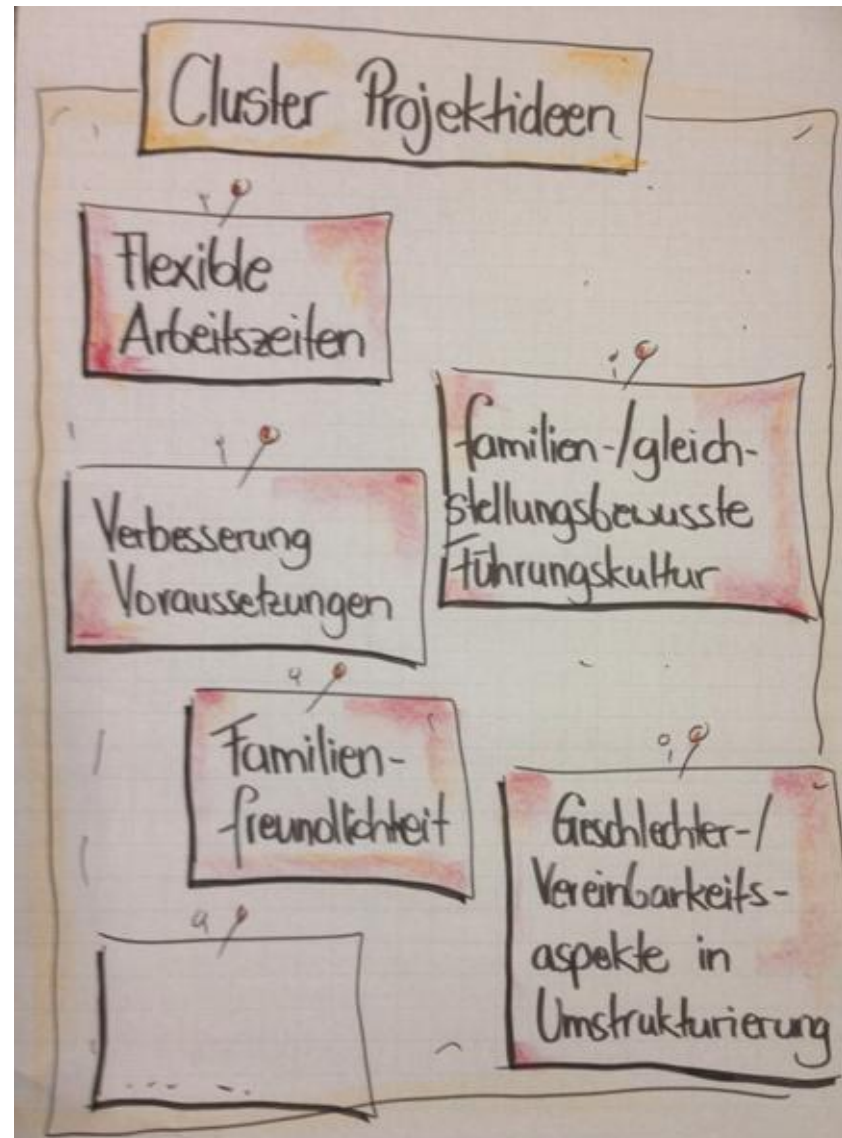 Cluster Projektideen
Flexible
Arbeitszeiten
familien-/gleich-
stellungsbewusste
Führungskultur
Verbesserung
Voraussetzungen
Familien-
freundlichkeit
Geschlechter-/
Vereinbarkeits-
aspekte in
Umstrukturierung